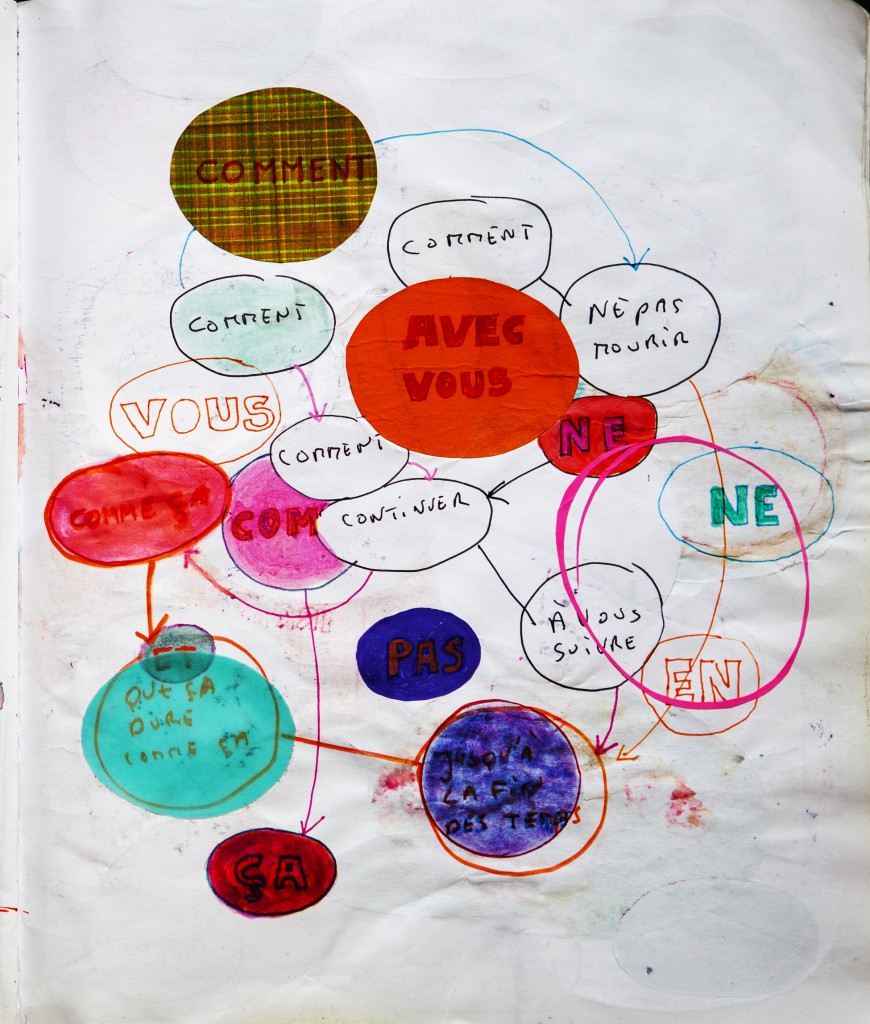 COMMENT
COMMENT
COMMENT
NE PAS
MOURIR
AVEC
VOUS
VOUS
NE
COMMENT
COMME ÇA
COM
CONTINUER
NE
À VOUS
SUIVRE
PAS
ET
EN
QUE ÇA
DURE
COMME ÇA
JUSQU'À
LA FIN
DES TEMPS
ÇA